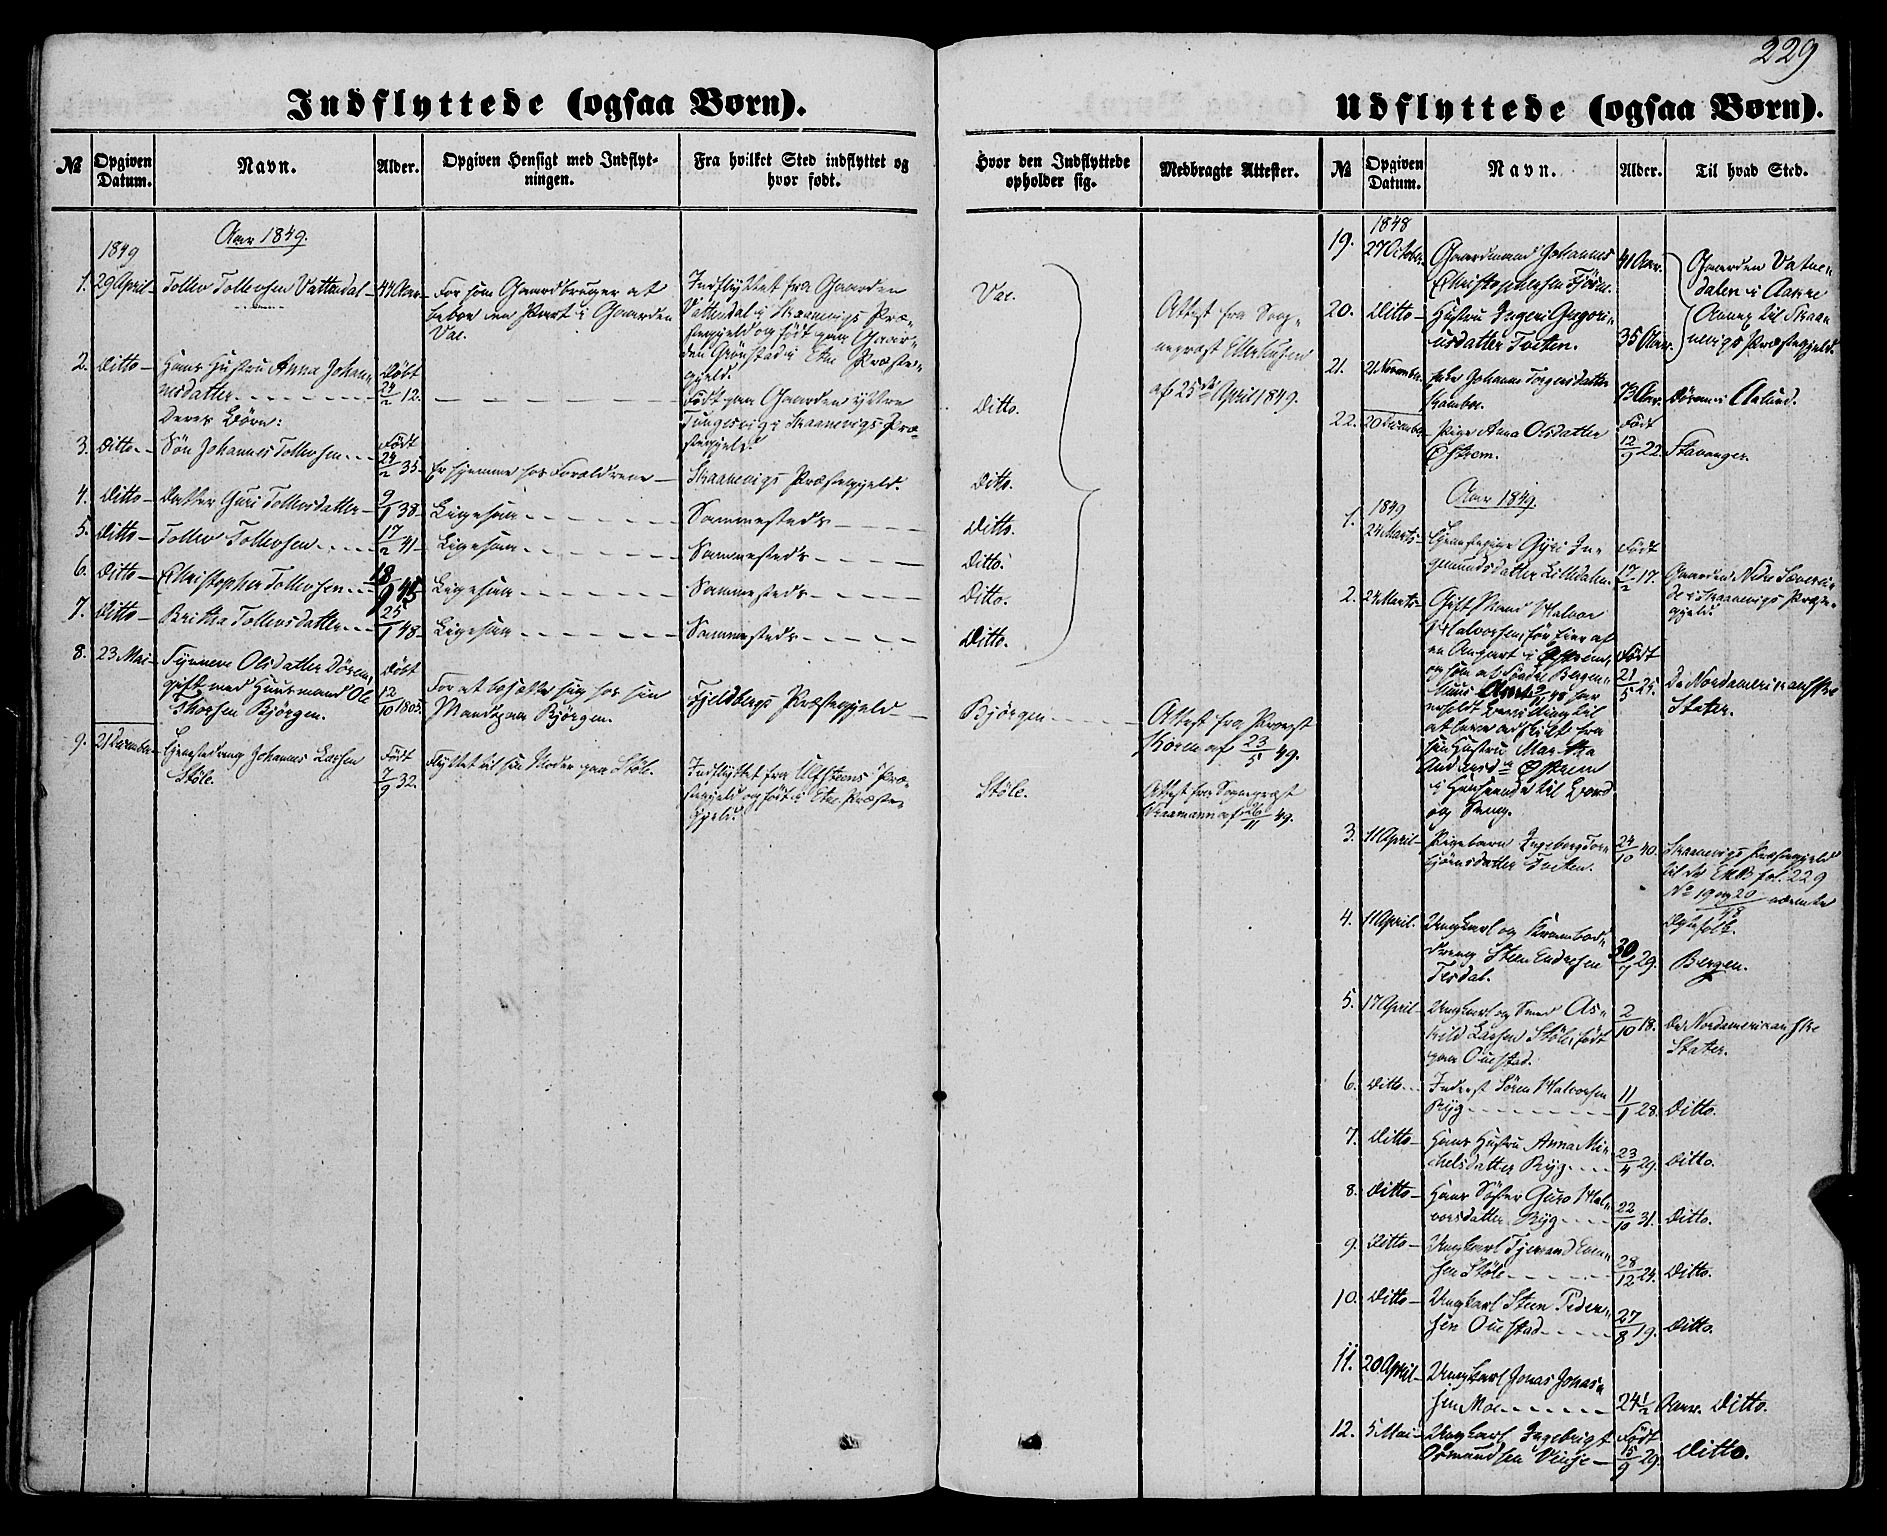 229
Indflyttede (ogsaa Børn).
№
Opgiven Datum.
Navn.
Alder.
Opgiven Hensigt med Indflyt-
ningen.
Fra hvilket Sted indflyttet og
hvor født.
Hvor den Indflyttede
opholder sig.
Medbragte Attester.
Aar 1849.
1849
1. 29 April Tollev Tollevsen Vattedal 44 Aar For som Gaardbruger at
beboe en Part i Gaarden
Vae.
Indflyttet fra Gaarden
Vattedal i Skaanevigs Præ-
stegjeld og født paa Gaar-
den Grønstad i Etne Præste-
gjeld.
Vae.
Attest fra Sog-
nepræst
af 25de April 1849.
2. Ditto Hans Hustru Anna Johan-
nesdatter
Døbt
24/2 12.
Født paa Gaarden ydre
Tungesvig i Skaanevigs Præ-
stegjeld.
Ditto.
Deres Børn:
3. Ditto Søn Johannes Tollevsen Født
24/2 35 Er hjemme hos Forældrene Skaanevigs Præstegjeld. Ditto.
4. Ditto Datter Guri Tollevsdatter 9/1 38 Ligesaa Sammesteds Ditto.
5. Ditto Tollev Tollevsen 17/2 41 Ligesaa Sammesteds Ditto.
6. Ditto Christopher Tollevsen 18/9 45 Ligesaa Sammesteds Ditto.
7. Ditto Britha Tollevsdatter 25/1 48 Ligesaa Sammesteds Ditto.
8. 23 Mai Synneve Olsdatter Døren,
gift med Huusmand Ole
Thorsen Bjørgen.
Døbt
12/10 1805.
For at bosætte sig hos sin
Mand paa Bjørgen.
Fjeldbergs Præstegjeld
Bjørgen
Attest fra Provst
Koren af 23/5 49.
9. 21 December Tjenestedreng Johannes Larsen
Støle.
Født
7/9 32.
Flyttet til sin Moder paa Støle.
Indflyttet fra Præ-
stegjeld og født i Etne Præste-
gjeld.
Støle.
Attest fra Sognepræst
af 26/11 49.
Udflyttede (ogsaa Børn).
№
Opgiven Datum.
Navn.
Alder.
Til hvad Sted.
1848
19. 27 October Gaardmand Johannes
Christophersen
41 Aar.
Gaarden Vatne-
dalen i Aakre
Annex til Skaa-
nevigs Præstegjeld.
20. Ditto Hustru Ingeri Gregori-
usdatter Tveten.
35 Aar.
21. 21 November Enke Johanne Torgersdatter
73 Aar. Døren i Ølund.
22. 20 December Pige Anna Olsdatter
Østrem.
Født
12/9 22. Stavanger.
Aar 1849.
1849
1. 24 Marts Tjenestepige Gyri In-
gemundsdatter Lilledalen.
Født
17/2 17.
Gaarden Nedre
i Skaanevigs Præste-
gjeld.
2. 24 Marts Gift Mand Halvor
Halvorsen, før Eier af
en Anpart i Østrem,
og som af Søndre Bergen-
huus Amt har
erholdt Bevilling til
at leve adskilt fra
sin Hustru Martha
Andersdr Østrem
i Henseende til Bord
og Seng.
Født
21/5 25.
De Nordamerikanske
Stater.
3. 11 April Pigebarn Ingeborg Tor-
bjørnsdatter Tveten.
24/10 40.
Skaanevigs Præstegjeld
til de fol. 229
No 19 og 20/48 nævnte
Ægtefolk.
4. 11 April Ungkarl og Krambod-
dreng Steen Endresen
Tesdal.
30/7 29. Bergen.
5. 17 April Ungkarl og Smed As-
kild Larsen Støle, født
paa Ouestad.
2/10 18. De Nordamerikanske
Stater.
6. Ditto Inderst Søren Halvorsen
Ryg
11/1 28. Ditto.
7. Ditto Hans Hustru Anna Mi-
chelsdatter Ryg
23/4 29. Ditto.
8. Ditto Hans Søster Guro Hal-
vorsdatter Ryg
22/10 31. Ditto.
9. Ditto Ungkarl Tjerand
Støle
28/12 24. Ditto.
10. Ditto Ungkarl Steen Peder-
sen Ouestad
27/8 19. Ditto.
11. 20 April Ungkarl Jonas Jonas-
sen Moe
24½ Aar. Ditto.
12. 5 Mai Ungkarl Ingebrigt
Osmundsen Vinje
Født
15/9 29. Ditto.